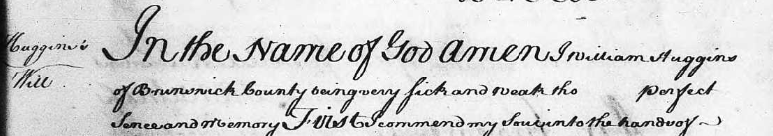 Huggins's
Will
In the Name of God Amen I William Huggins
of Brunswick County being very sick and weak tho perfect
Sence and Memory First I commend my Soul into the hands of